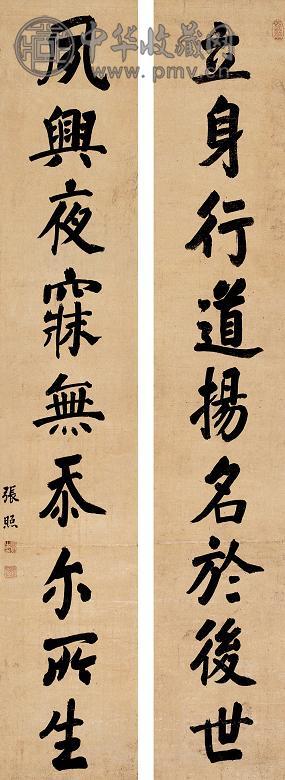 立身行道揚名於後世
夙興夜寐無忝尔所生
張照
中华收藏网
www.pmv.cn